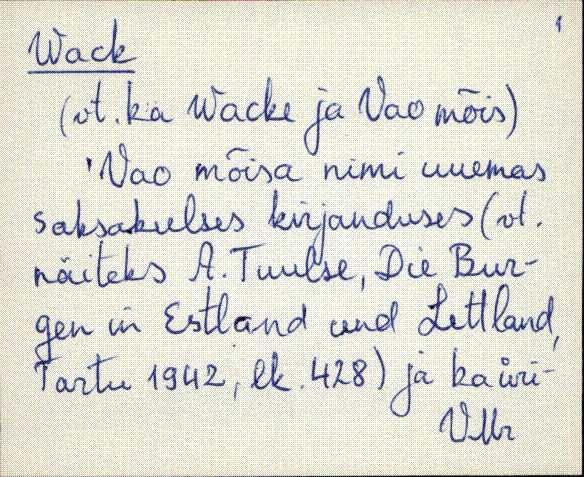 1
Wack
(vt. ka Wacke ja Vao mõis)
'Vao mõisa nimi uuemas
saksakeelses kirjanduses (vt.
näiteks A. Tuulse, Die Bur-
gen in Estland und Lettland,
Tartu 1942, lk. 428) ja ka üri-
VMr